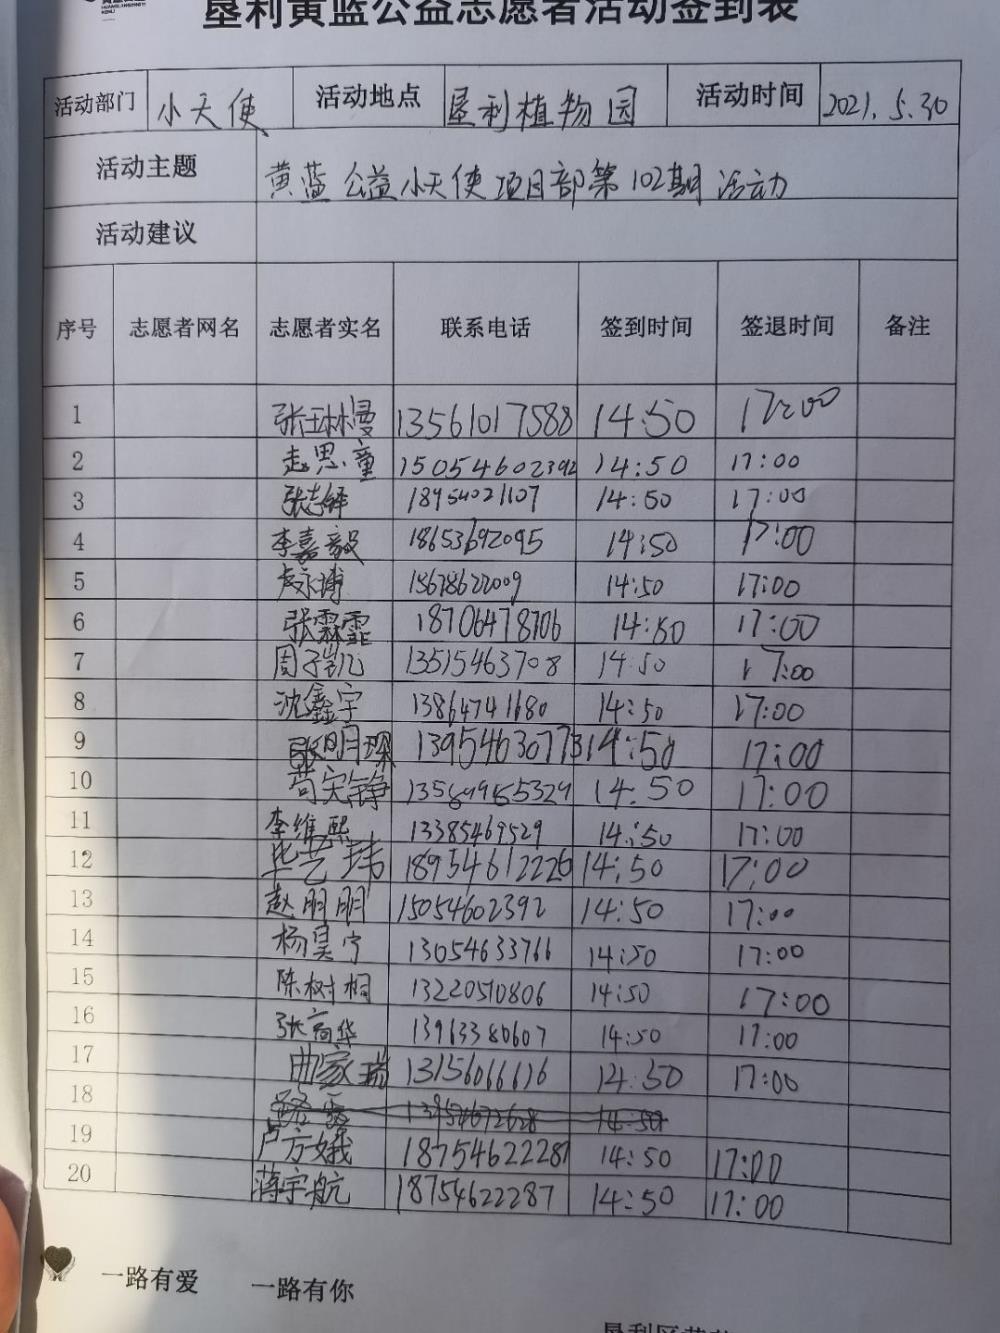 垦利黄蓝公益志愿者活动签到表
活动部门 小天使 活动地点 垦利植物园 活动时间 2021.5.30
活动主题 黄蓝公益小天使项目部第102期活动
活动建议
序号 志愿者网名 志愿者实名 联系电话 签到时间 签退时间 备注
1 张珏琳漫 13561017588 14:50 17:00
2 赵思童 15054602392 14:50 17:00
3 张志铎 18954021107 14:50 17:00
4 李嘉毅 18653692095 14:50 17:00
5 14:50 17:00
6 张霖霏 18706478706 14:50 17:00
7 周子凯 13515463708 14:50 17:00
8 沈鑫宇 13864741680 14:50 17:00
9 张明琛 13954630773 14:50 17:00
10 14:50 17:00
11 李维熙 13385469529 14:50 17:00
12 毕艺玮 18954612226 14:50 17:00
13 赵朋朋 15054602392 14:50 17:00
14 杨昊宁 13054633766 14:50 17:00
15 陈树桐 13220510806 14:50 17:00
16 张高华 13963380607 14:50 17:00
17 曲家瑞 13156066616 14:50 17:00
18 14:50
19 卢方娥 18754622287 14:50 17:00
20 蒋宇航 18754622287 14:50 17:00
一路有爱 一路有你